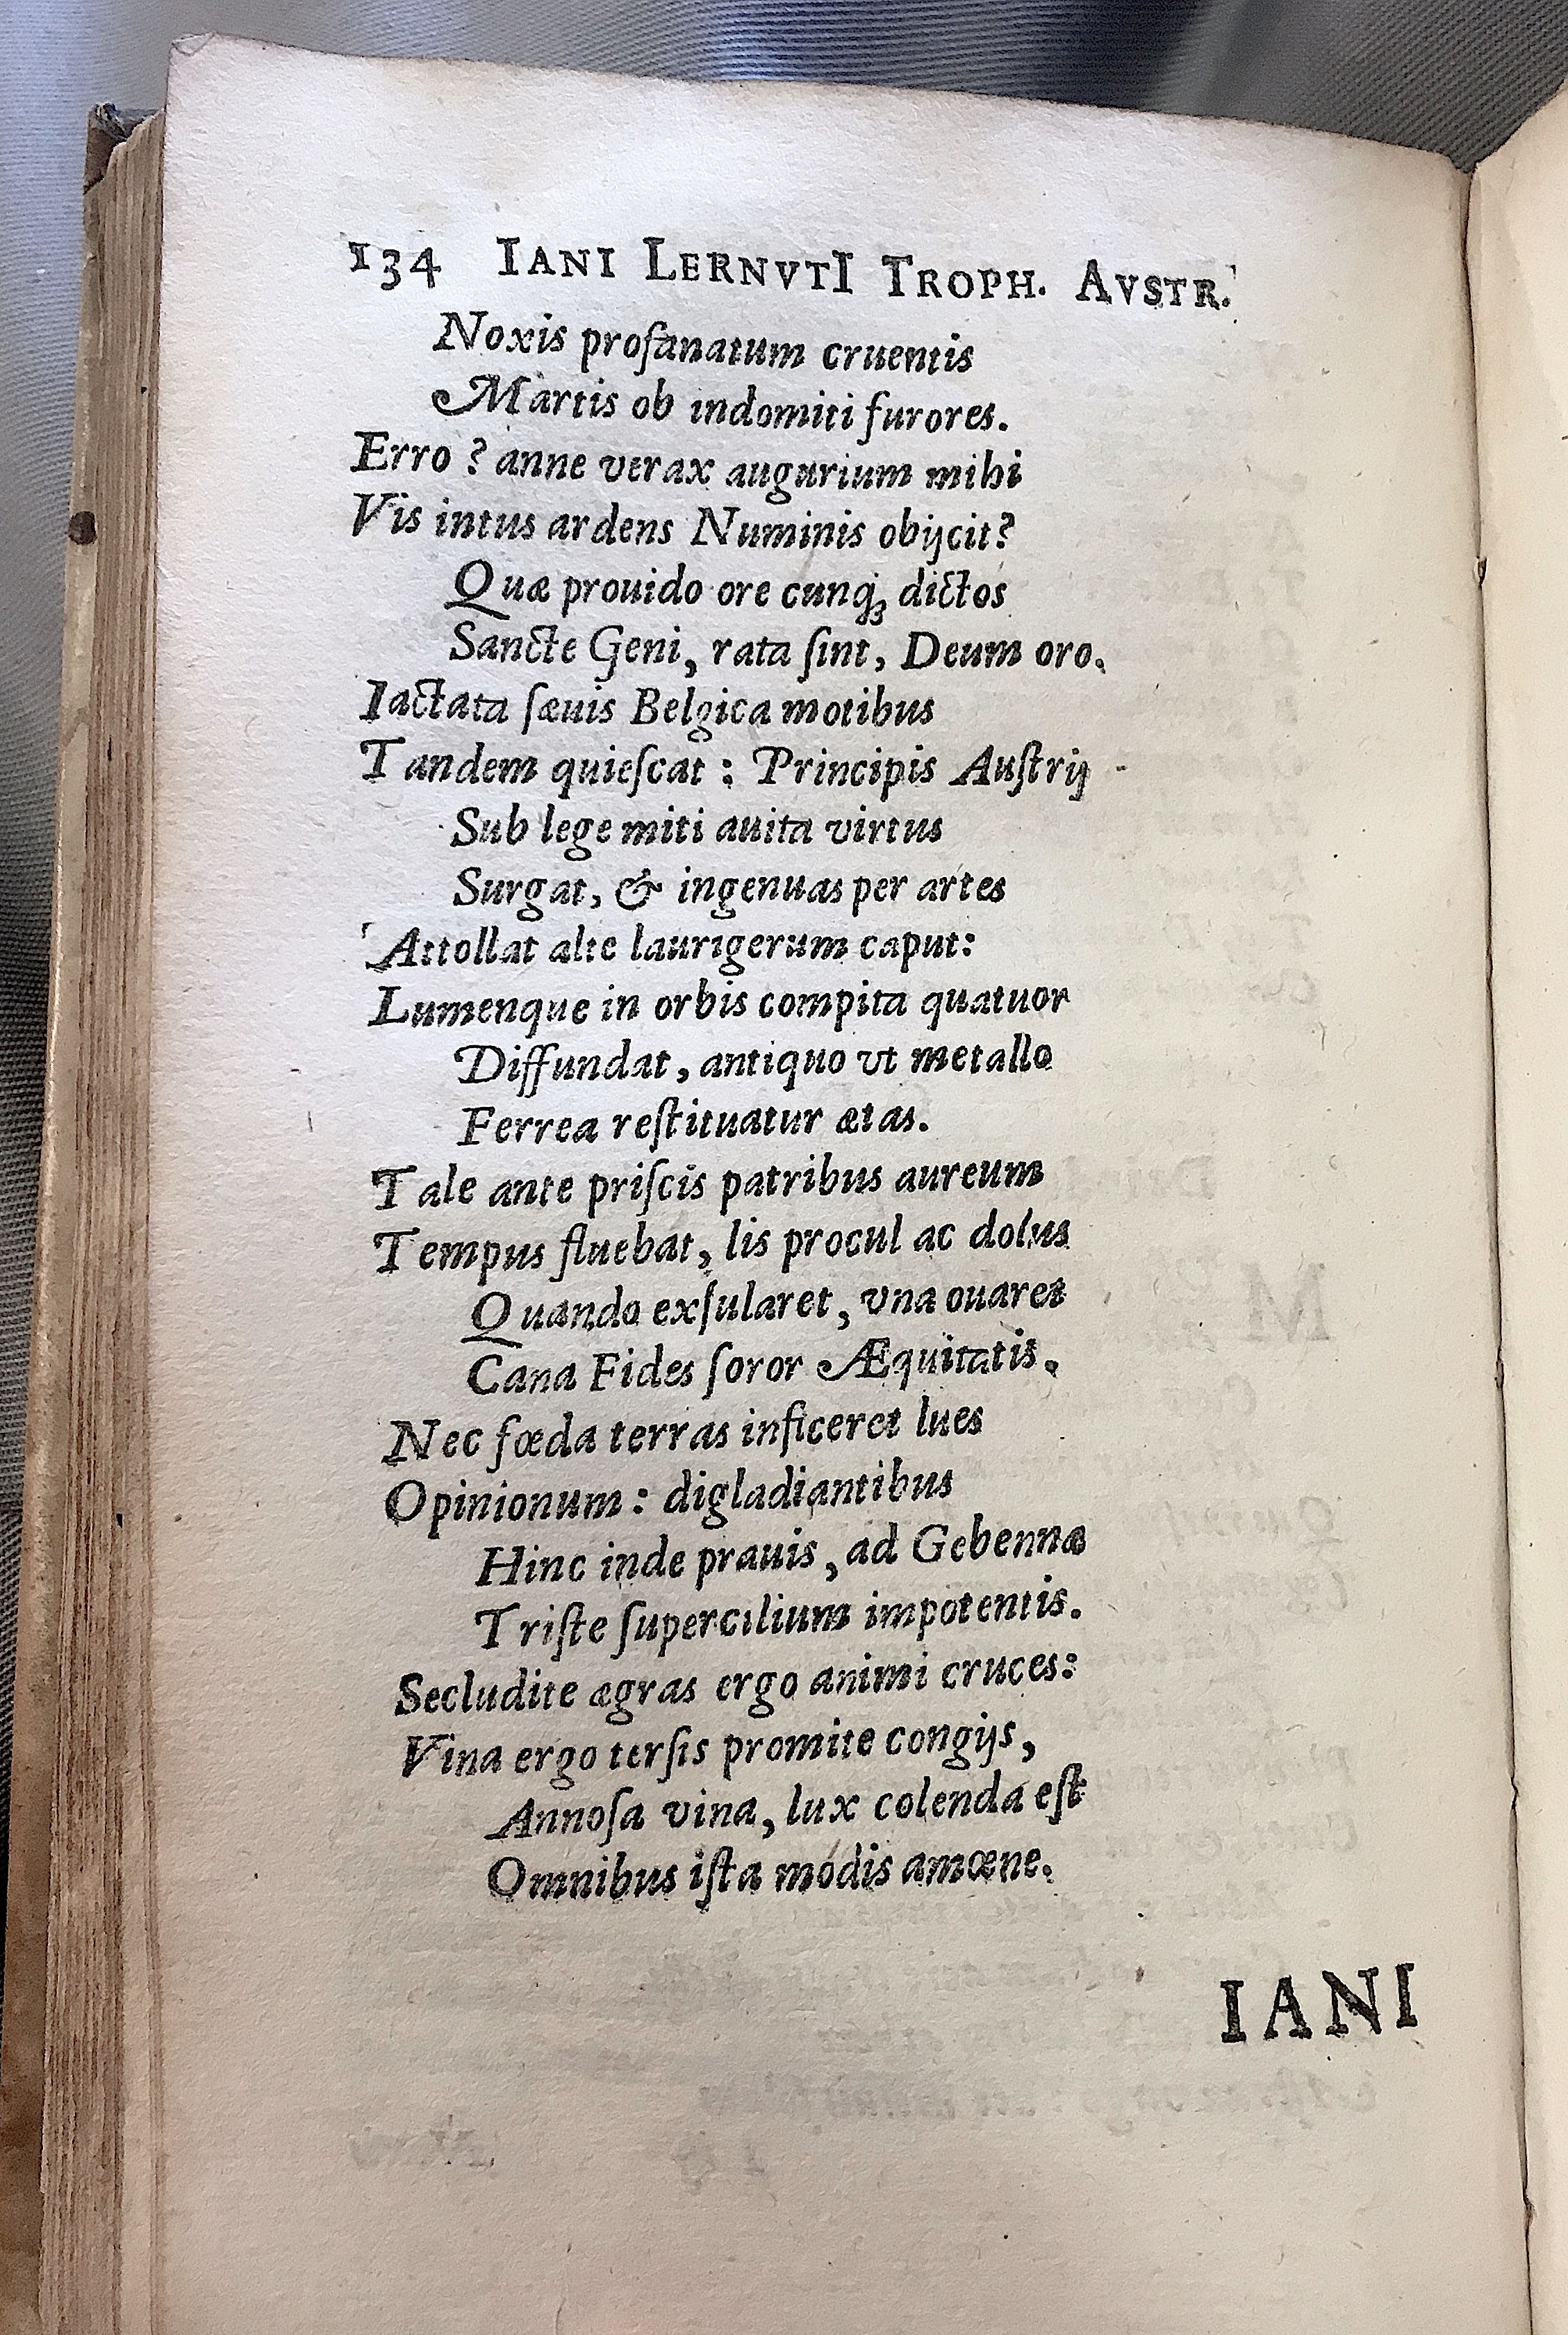 134 IANI LERNVTI TROPH. AVSTR.
Noxis profanatum cruentis
Martis ob indomiti furores.
Erro? anne verax augurium mihi
Vis intus ardens Numinis obijcit?
Quæ prouido ore cunq́ꝫ dictos
Sancte Geni, rata ſint, Deum oro.
Iactata ſæuis Belgica motibus
Tandem quieſcat: Principis Auſtrij
Sub lege miti auita virtus
Surgat, & ingenuas per artes
Attollat alte laurigerum caput:
Lumenque in orbis compita quatuor
Diffundat, antiquo vt metallo
Ferrea reſtituatur ætas.
Tale ante priſcis patribus aureum
Tempus fluebat, lis procul ac dolus
Quando exſularet, vna ouaret
Cana Fides ſoror Æquitatis.
Nec fœda terras inficeret lues
Opinionum: digladiantibus
Hinc inde prauis, ad Gebennæ
Triſte ſupercilium impotentis.
Secludite ægras ergo animi cruces:
Vina ergo terſis promite congijs,
Annoſa vina, lux colenda eſt
Omnibus iſta modis amœne.
IANI